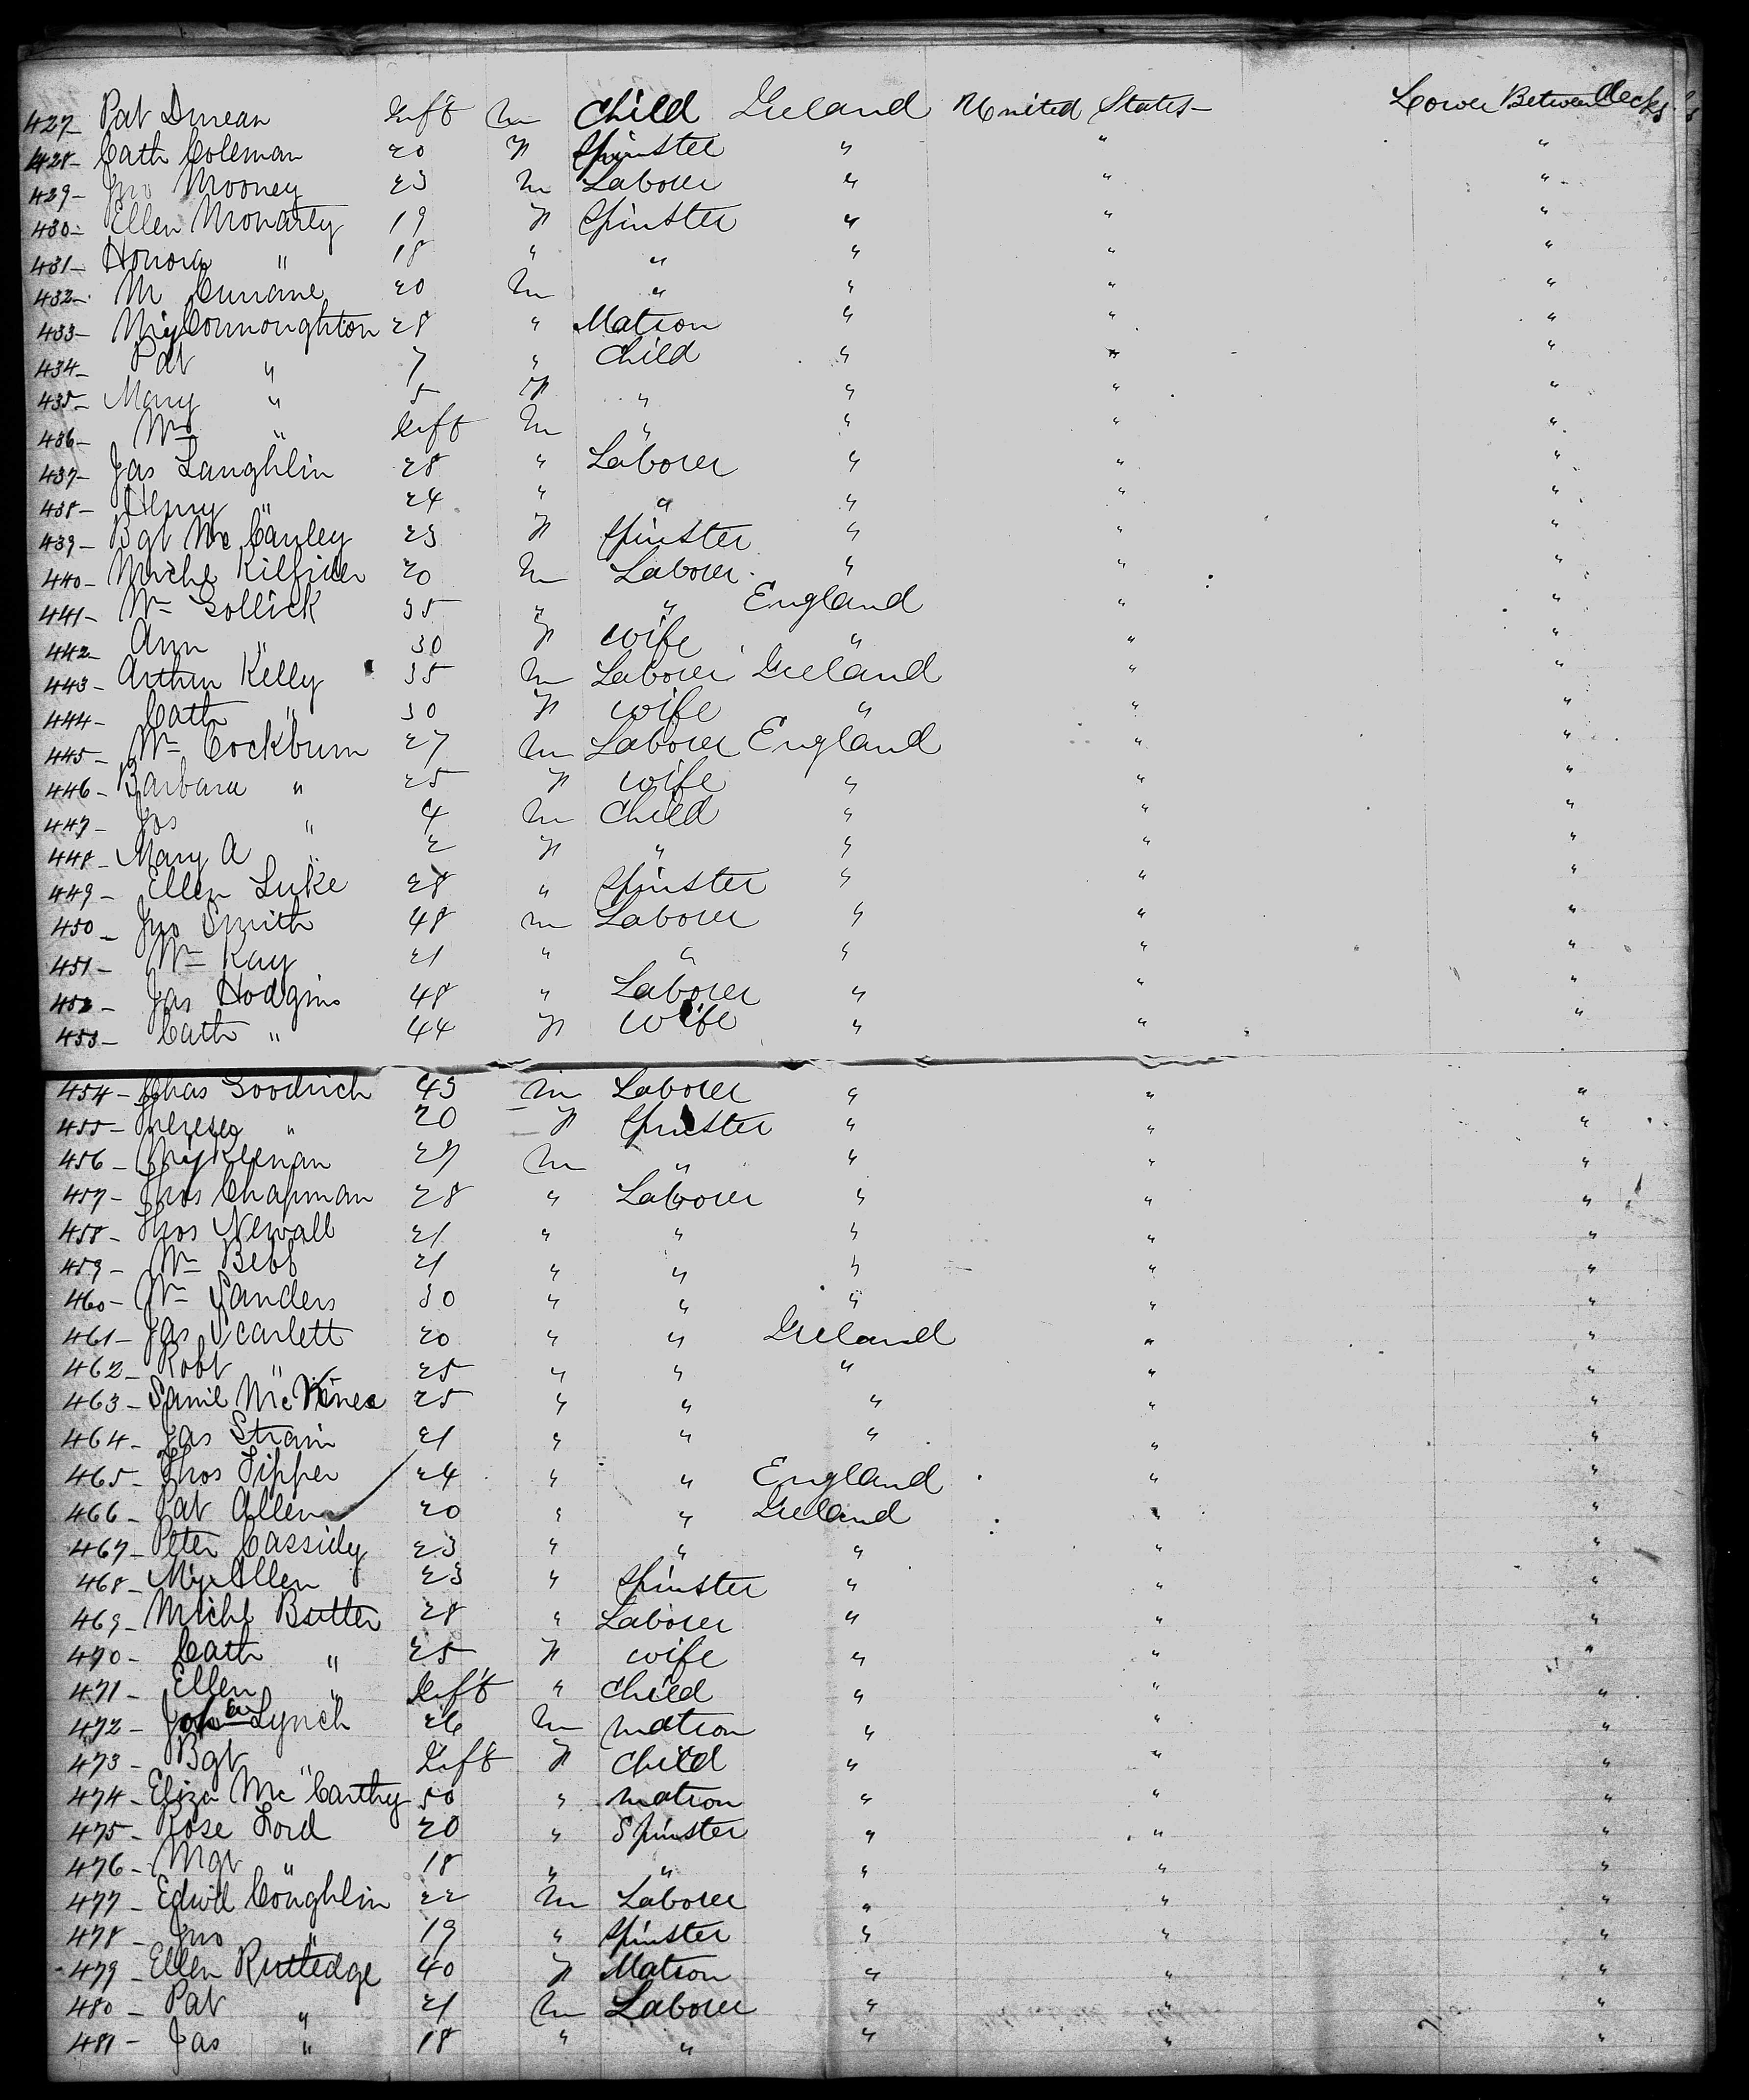 427- Pat Duncan Inft M Child Ireland United States- Lower Between Decks
428- Cath Coleman 20 F Spinster " " "
429- Jno Mooney 23 M Laborer " " "
430- Ellen Moriarty 19 F Spinster " " "
431- Honora " 18 " " " " "
432- M Cunane 20 M " " " "
433- Mgt Connoughton 28 " Matron " " "
434- Pat " 7 " Child " " "
435- Mary " 5 F " " " "
436- Wm " Inft M " " " "
437- Jas Laughlin 28 " Laborer " " "
438- Henry " 24 " " " " "
439- Bgt McCauley 23 F Spinster " " "
440- Michl 20 M Laborer " " "
441- Wm Gollick 35 " " England " "
442- Ann " 30 F Wife " " "
443- Arthur Kelly 35 M Laborer Ireland " "
444- Cath " 30 F Wife " " "
445- Wm Cockburn 27 M Laborer England " "
446- Barbara " 25 F Wife " " "
447- Jas " 4 M Child " " "
448- Mary A " 2 F " " " "
449- Ellen Luke 28 " Spinster " " "
450- Jno Smith 48 M Laborer " " "
451- Wm Kay 21 " " " " "
452- Jas Hodgins 48 " Laborer " " "
453- Cath " 44 F Wife " " "
454- Chas Goodrich 43 M Laborer " " "
455- Theresa " 20 F Spinster " " "
456- Mgt Keenan 27 M " " " "
457- Thos Chapman 28 " Laborer " " "
458- Thos Newall 21 " " " " "
459- Wm Bebb 21 " " " " "
460- Wm Sanders 30 " " " " "
461- Jas Scarlett 20 " " Ireland " "
462- Robt " 25 " " " " "
463- Saml 25 " " " " "
464- Jas Strain 21 " " " " "
465- Thos Tipper 24 " " England " "
466- Pat Allen 20 " " Ireland " "
467- Peter Cassidy 23 " " " " "
468- Mgt Allen 23 " Spinster " " "
469- Michl Butler 28 " Laborer " " "
470- Cath " 25 F Wife " " "
471- Ellen " Inft " Child " " "
472- Lynch 26 M Matron " " "
473- Bgt " Inft F Child " " "
474- Eliza McCarthy 50 " Matron " " "
475- Rose Lord 20 " Spinster " " "
476- Mgt " 18 " " " " "
477- Edwd Coughlin 22 M Laborer " " "
478- Jno " 19 " Spinster " " "
479- Ellen Rutledge 40 F Matron " " "
480- Pat " 21 M Laborer " " "
481- Jas " 18 " " " " "